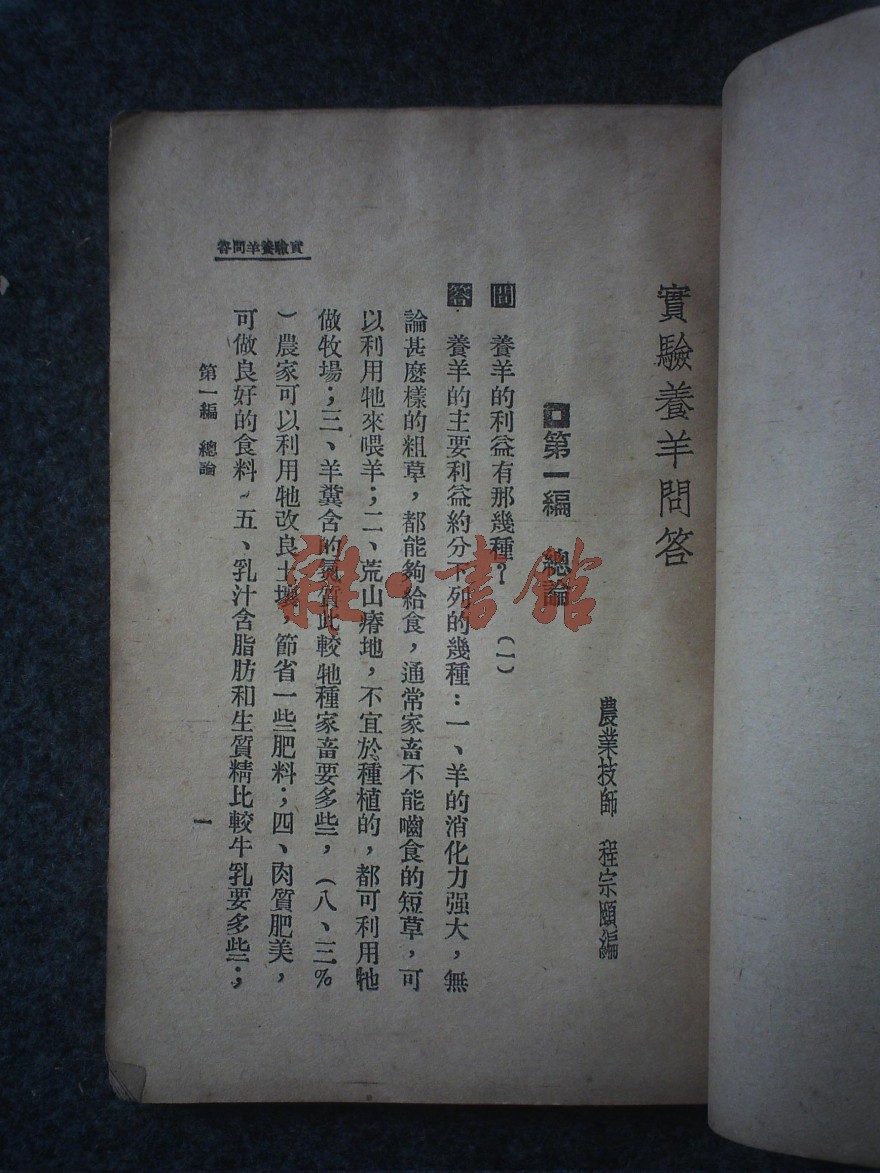 實驗養羊問答
農業技師 程宗頤編
第一編 總論
問 養羊的利益有那幾種？（一）
答 養羊的主要利益約分下列的幾種：一、羊的消化力强大，無
論甚麽樣的粗草，都能夠給食，通常家畜不能嚙食的短草，可
以利用牠來喂羊；二、荒山瘠地，不宜於種植的，都可利用牠
做牧場；三、羊糞含的氮質比較牠種家畜要多些，（八、三%
）農家可以利用牠改良土壤，節省一些肥料；四、肉質肥美，
可做良好的食料，五、乳汁含脂肪和生質精比較牛乳要多些；
實驗養羊問答
第一編 總論
一
雜·書館